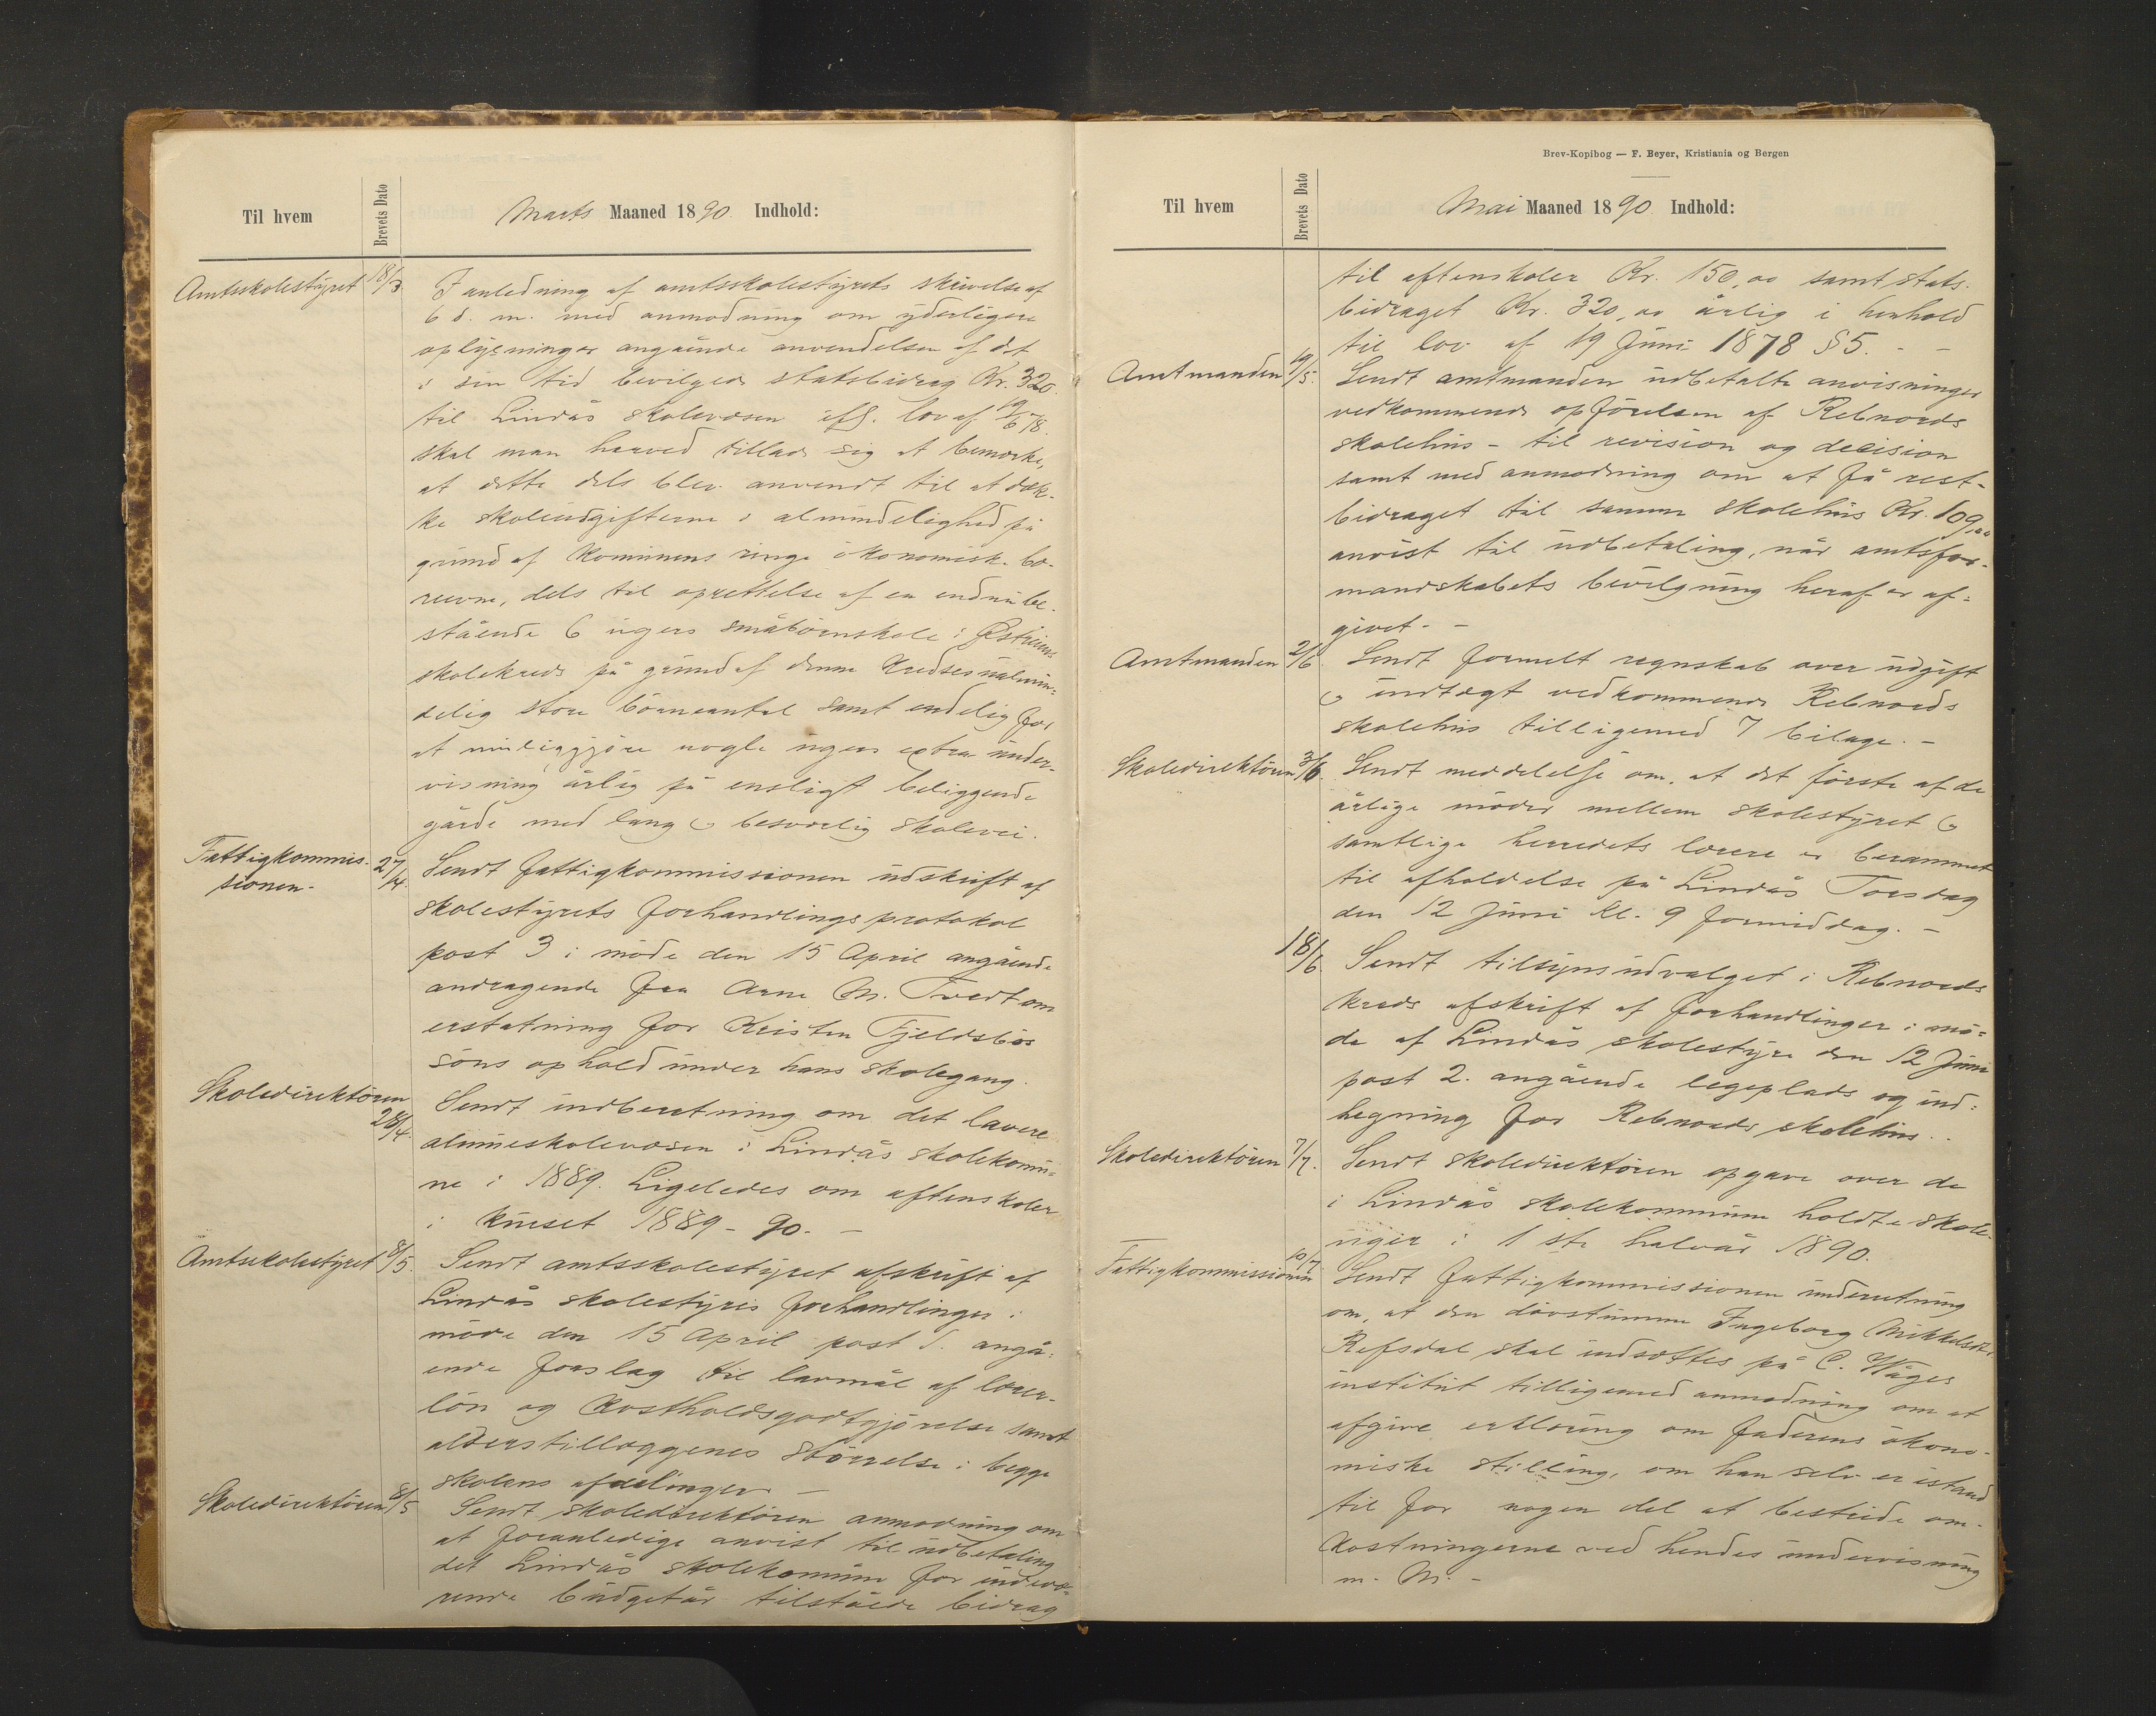 Til hvem
Brevets Dato
Marts Maaned 1890. Indhold:
Amtsskolestyret 18/3.
I anledning af amtsskolestyrets skrivelse af
6 d. m. med anmodning om yderligere
oplysninger angående anvendelsen af det
i sin tid bevilgede statsbidrag Kr. 320.
til Lindås skolevæsen lov af 19/6 78.
skal man herved tillade sig at bemærke,
at dette dels blev anvendt til at dæk-
ke skoleudgifterne i almindelighed på
grund af kommunens ringe økonomisk
evne, dels til oprettelse af en endnu be-
stående 6 ugers småbørnskole i
skolekreds på grund af denne kredses ualmin-
delig store börneantal samt endelig for
at muliggjöre nogle ugers extra under-
visning årlig på ensligt beliggende
gårde med lang & besværlig skolevei.
Fattigkommis-
sionen.
27/4.
Sendt fattigkommissionen udskrift af
skolestyrets forhandlingsprotokol
post 3 i möde den 15 April angående
andragende fra Arne M. Tvedt om
erstatning for Kristen Fjeldsbös
söns ophold under hans skolegang.
Skoledirektören
28/4.
Sendt indberetning om det lavere
almueskolevæsen i Lindås skolekommu-
ne i 1889. Ligeledes om aftenskoler
i kurset 1889-90. -
Amtsskolestyret 8/5.
Sendt amtsskolestyret afskrift af
Lindås skolestyres forhandlinger i
möde den 15 April post angå-
ende forslag til lavmål af lærer-
lön og kostholdsgodtgjörelse samt
alderstillæggenes störrelse i begge
skolens afdelinger -
Skoledirektören 8/5
Sendt skoledirektören anmodning om
at foranledige anvist til udbetaling
det Lindås skolekommune for indevæ-
rende budgetår tilståede bidrag
Brev-Kopibog — F. Beyer, Kristiania og Bergen
Til hvem
Brevets Dato
Mai Maaned 1890 Indhold:
til aftenskoler Kr. 150,00 samt stats-
bidraget Kr. 320,00 årlig i henhold
til lov af 19 Juni 1878 § 5. - -
Amtmanden 19/5.
Sendt amtmanden udbetalte anvisninger
vedkommende opförelsen af Rebnords
skolehus - til revision og decision
samt med anmodning om at få rest-
bidraget til samme skolehus Kr. 109,00
anvist til udbetaling, når amtsfor-
mandskabets bevilgning heraf er af-
givet. -
Amtmanden 2/6.
Sendt formelt regnskab over udgift
& indtægt vedkommende Rebnords
skolehus tilligemed 7 bilage. -
Skoledirektören 3/6.
Sendt meddelelse om, at det förste af de
årlige möder mellem skolestyret &
samtlige herredets lærere er berammet
til afholdelse på Lindås Torsdag
den 12 Juni kl. 9 formiddag. -
18/6.
Sendt tilsynsudvalget i Rebnords
kreds afskrift af forhandlinger i mö-
de af Lindås skolestyre den 12 Juni
post 2. angående legeplads og ind-
hegning for Rebnords skolehus. .
Skoledirektören 7/7.
Sendt skoledirektören opgave over de
i Lindås skolekommune holdte skole-
uger i 1ste halvår 1890.
Fattigkommissionen 10/7
Sendt fattigkommissionen underretning
om, at den dövstumme Ingeborg Mikkelsdtr.
Refsdal skal indsættes på C. Wåges
institut tilligemed anmodning om at
afgive erklæring om faderens ökono-
miske stilling, om han selv er istand
til for nogen del at bestride om-
kostningerne ved hendes undervisning
m. M. -